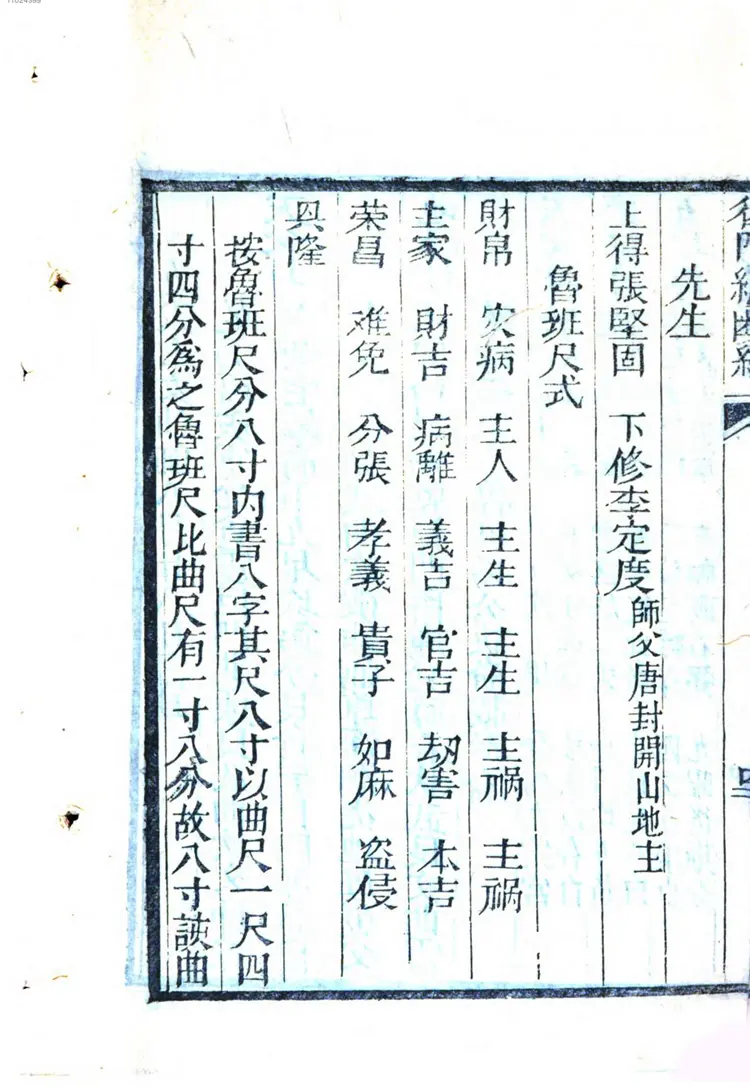 先生
上得張堅固　下修李定度師父唐封開山地主
魯班尺式
財帛　灾病　主人　主生　主生　主禍　主禍
主家　財吉　病離　義吉　官吉　劫害　本吉
荣昌　难免　分張　孝義　貴子　如麻　盗侵
興隆
按魯班尺分八寸内書八字其尺八寸以曲尺一尺四
寸四分爲之魯班尺比曲尺有一寸八分故八寸該曲